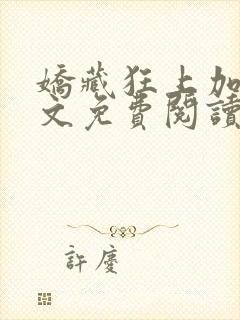 嬌藏狂上加
文免費閱讀
許慶